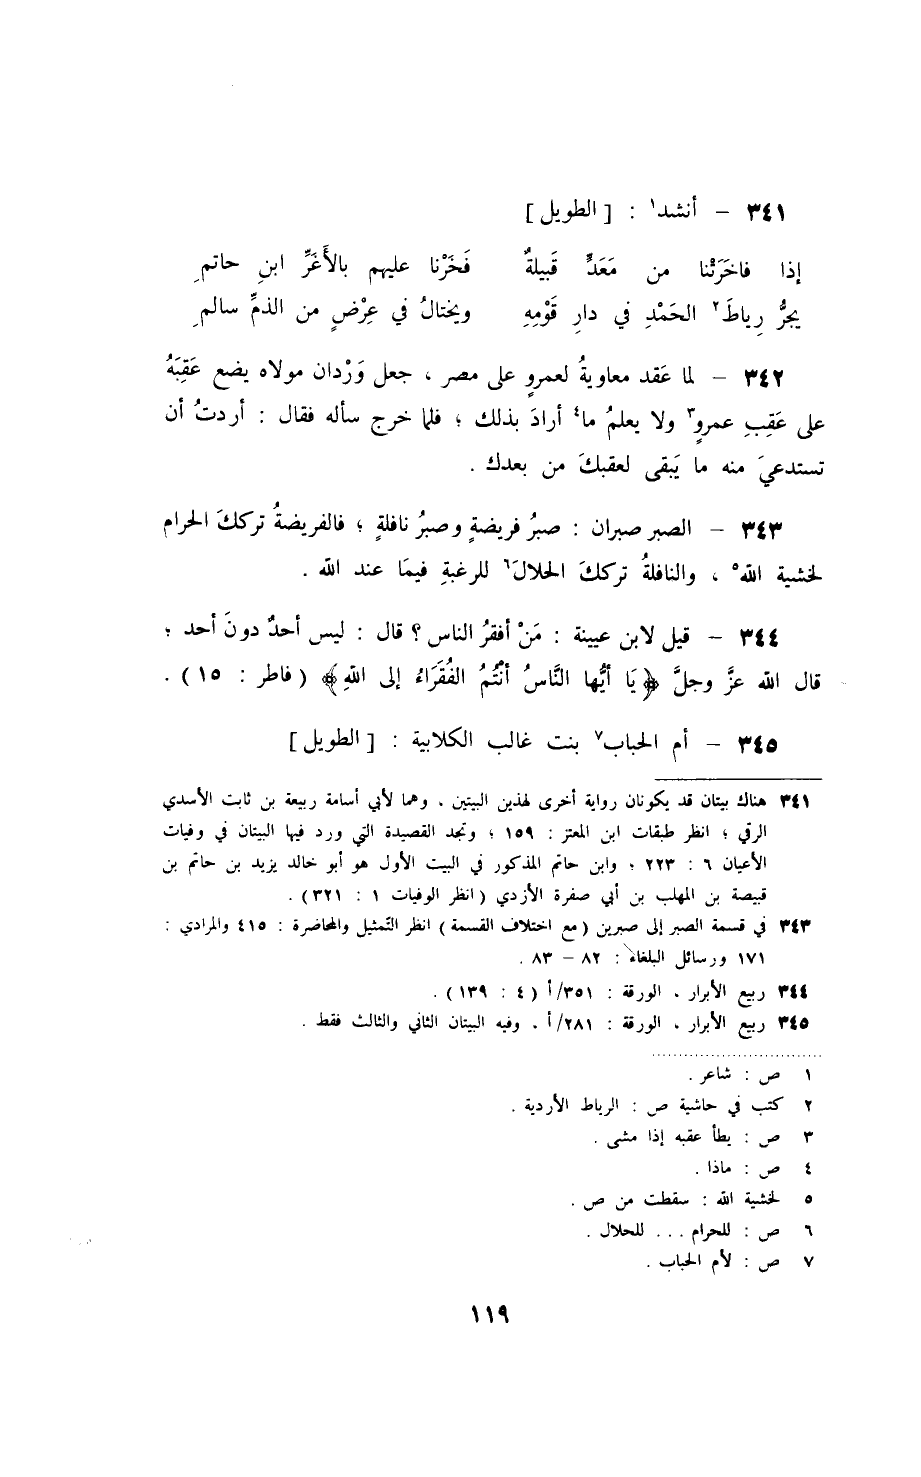 ٣٤١ – أنشد١ : [ الطويل ]
إذا فاخَرَتْنا من مَعَدٍّ قَبيلةٌ فَخَرْنا عليهم بالأَغَرِّ ابنِ حاتمِ
يجرُّ رِياطَ٢ الحَمْدِ في دارِ قَوْمِهِ ويختالُ في عِرْضٍ من الذمِّ سالمِ
٣٤٢ – لما عَقد معاويةُ لعمروٍ على مصر ، جعل وَرْدان مولاه يضع عَقِبَهُ
على عَقِبِ عمروٍ٣ ولا يعلمُ ما٤ أرادَ بذلك ؛ فلما خرج سأله فقال : أردتُ أن
تستدعيَ منه ما يَبقى لعقبكَ من بعدك .
٣٤٣ – الصبر صبران : صبرُ فريضةٍ وصبرُ نافلةٍ ؛ فالفريضةُ ترككَ الحرام
لخشية الله٥ ، والنافلةُ تركك الحلالَ٦ للرغبةِ فيمَا عند الله .
٣٤٤ – قيل لابن عيينة : مَنْ أفقرُ الناس ؟ قال : ليس أحدٌ دونَ أحد ؛
قال الله عزَّ وجلَّ ﴿يَا أيُّها النَّاسُ أنْتُمُ الفُقَرَاءُ إلى اللهِ﴾ ( فاطر : ١٥ ) .
٣٤٥ – أم الحباب٧ بنت غالب الكلابية : [ الطويل ]
٣٤١ هناك بيتان قد يكونان رواية أخرى لهذين البيتين ، وهما لأبي أسامة ربيعة بن ثابت الأسدي
الرقي ؛ انظر طبقات ابن المعتز : ١٥٩ ؛ وتجد القصيدة التي ورد فيها البيتان في وفيات
الأعيان ٦ : ٢٢٣ ؛ وابن حاتم المذكور في البيت الأول هو أبو خالد يزيد بن حاتم بن
قبيصة بن المهلب بن أبي صفرة الأزدي ( انظر الوفيات ١ : ٣٢١ ) .
٣٤٣ في قسمة الصبر إلى صبرين ( مع اختلاف القسمة ) انظر التمثيل والمحاضرة : ٤١٥ والمرادي :
١٧١ ورسائل البلغاء : ٨٢ – ٨٣ .
٣٤٤ ربيع الأبرار ، الورقة : ٣٥١/أ ( ٤ : ١٣٩ ) .
٣٤٥ ربيع الأبرار ، الورقة : ٢٨١/أ ، وفيه البيتان الثاني والثالث فقط .
١ ص : شاعر .
٢ كتب في حاشية ص : الرياط الأردية .
٣ ص : يطأ عقبه إذا مشى .
٤ ص : ماذا .
٥ لخشية الله : سقطت من ص .
٦ ص : للحرام ... للحلال .
٧ ص : لأم الحباب .
١١٩